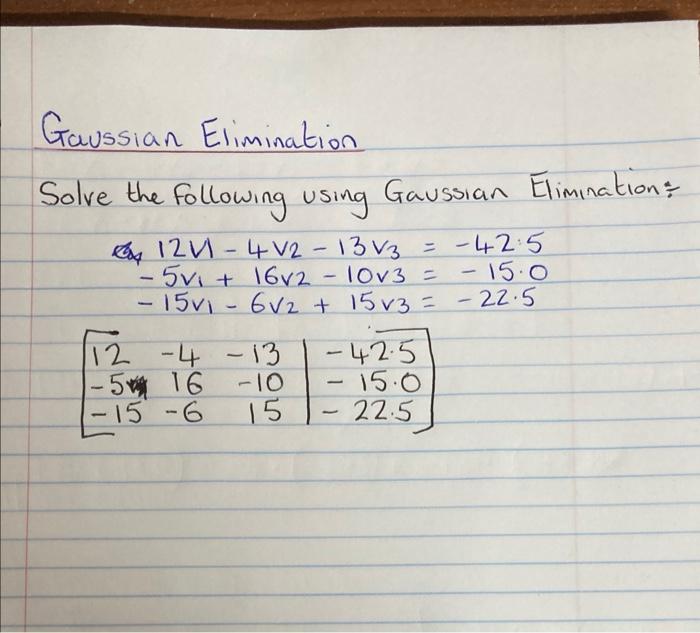 Gaussian Elimination
Solve the following using Gaussian Elimination:
12V1 - 4V2 - 13V3 = -42.5
- 5V1 + 16V2 - 10V3 = - 15.0
- 15V1 - 6V2 + 15V3 = - 22.5
12 -4 -13 | -42.5
-5 16 -10 | - 15.0
-15 -6 15 | - 22.5